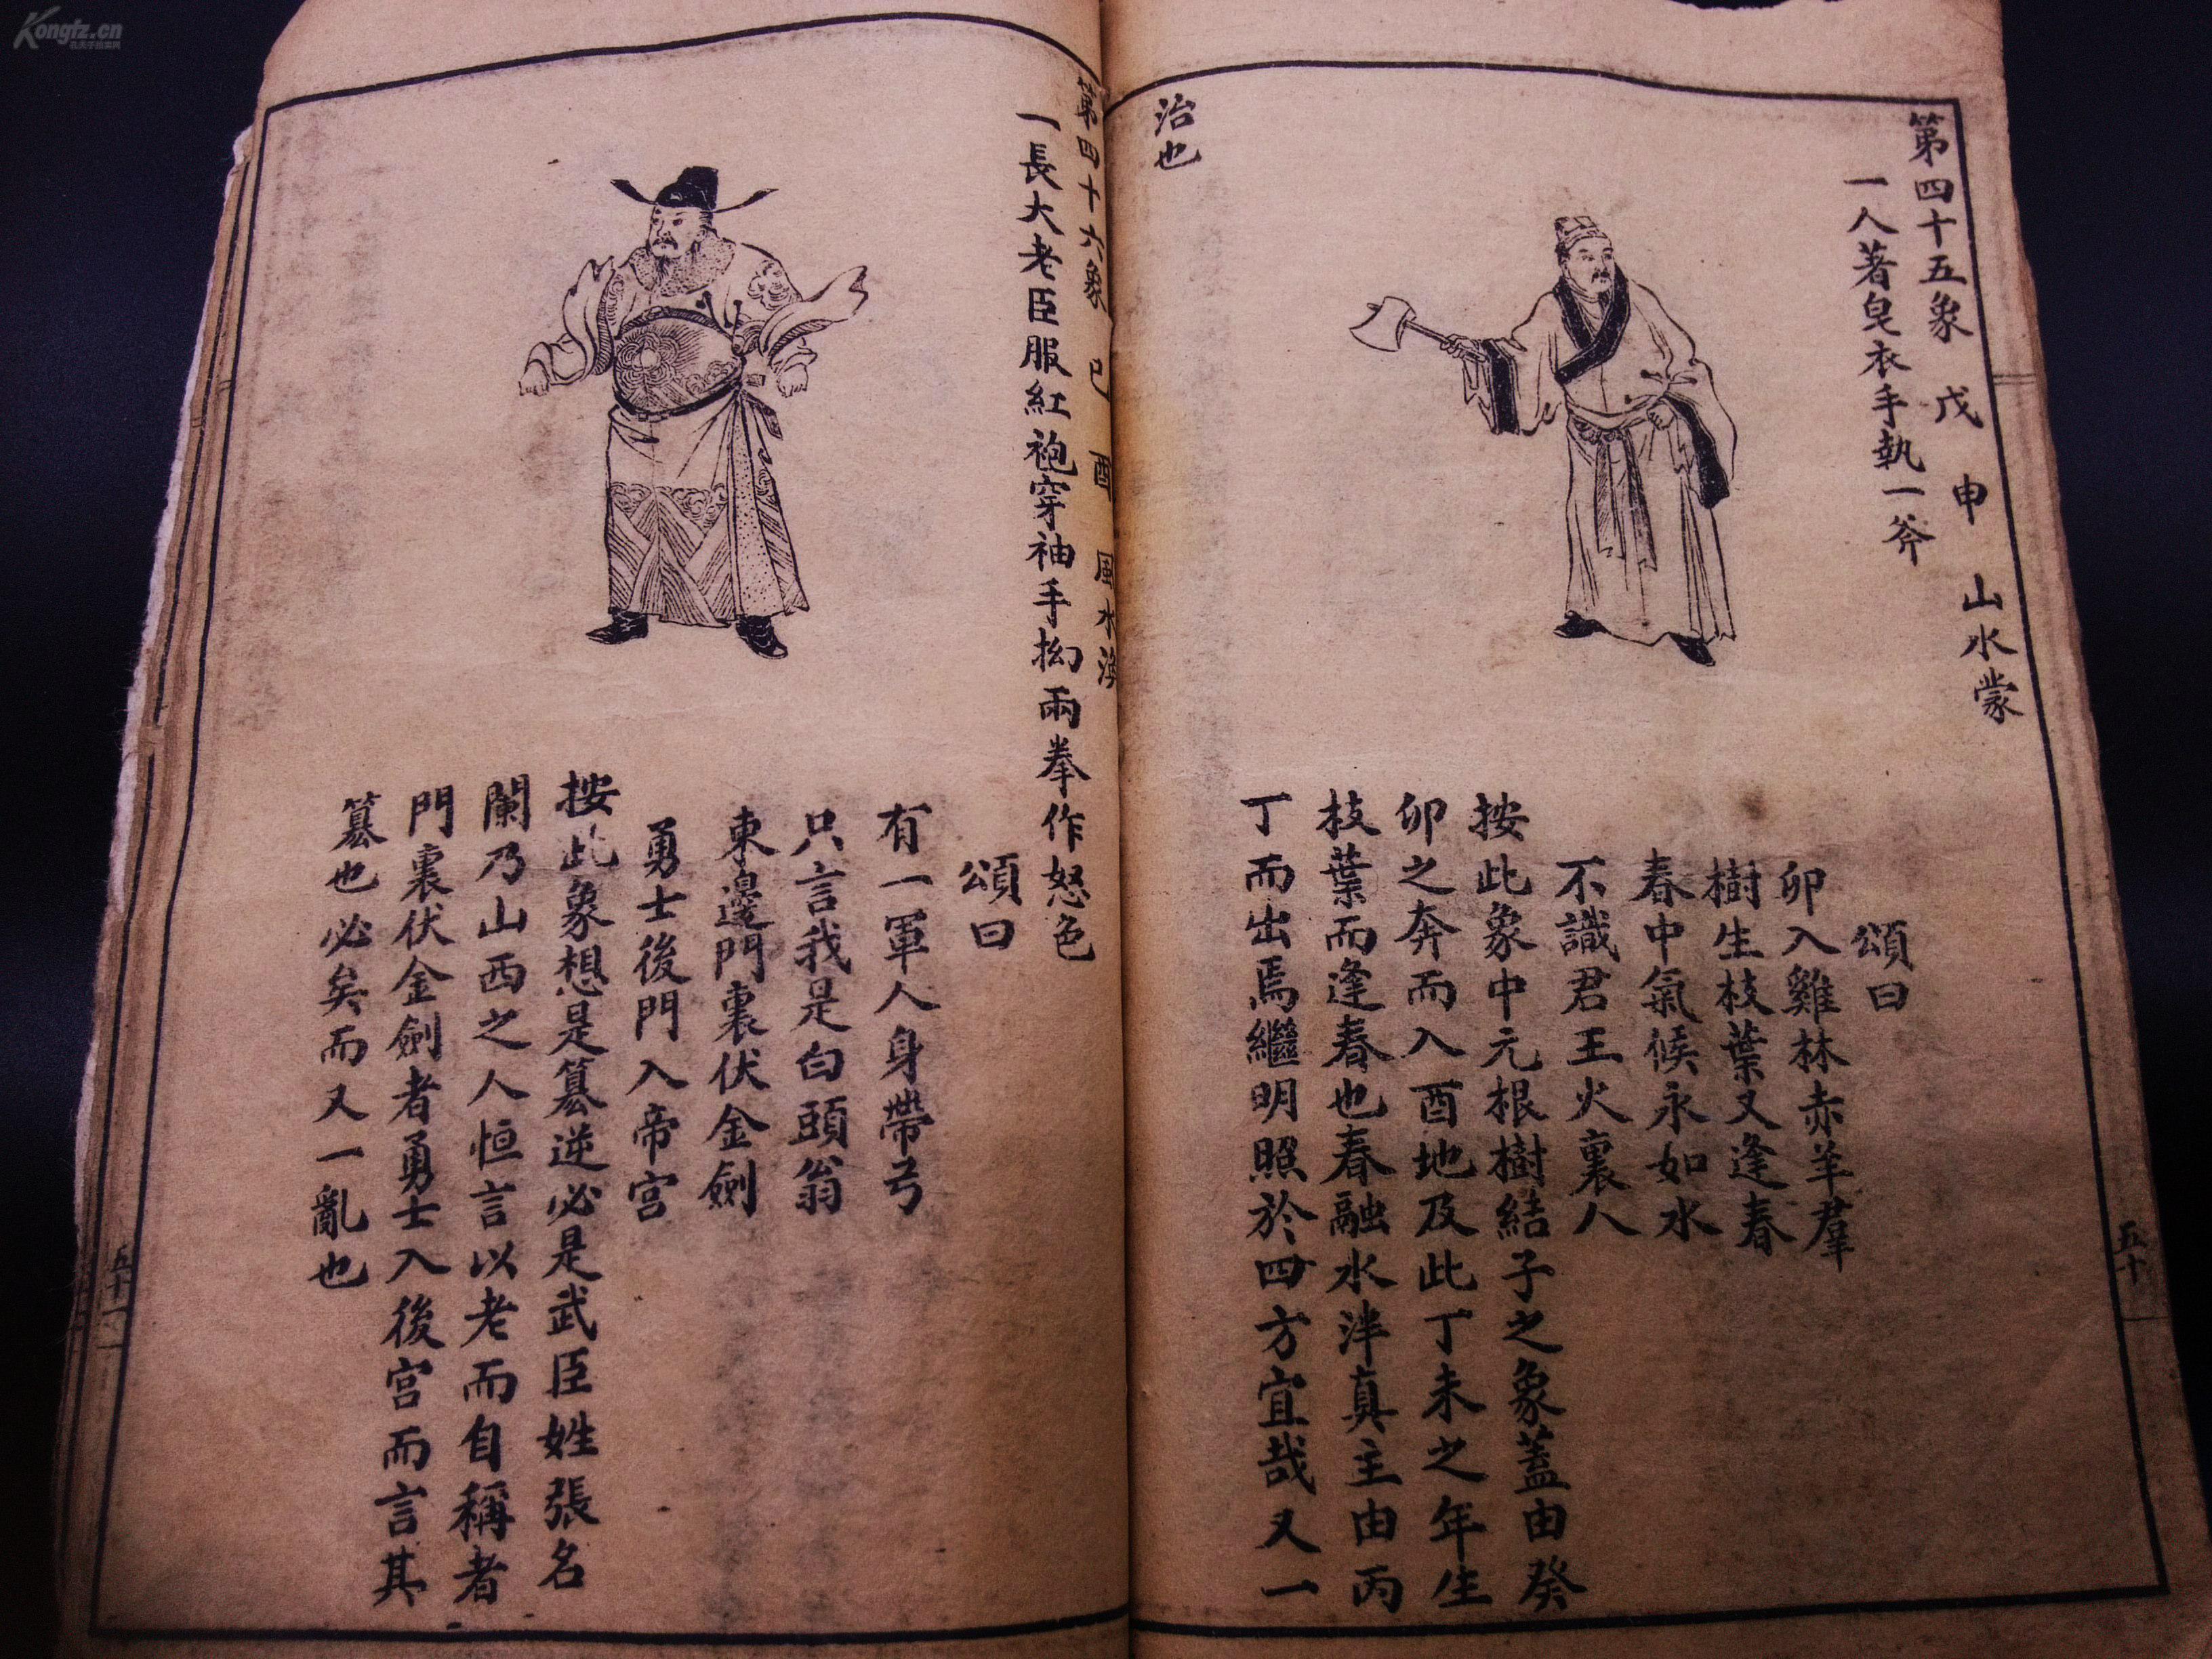 第四十五象 戊申 山水蒙
一人著皂衣手執一斧
頌曰
卯入雞林赤羊羣
樹生枝葉又逢春
春中氣候永如水
不識君王火裏人
按此象中元根樹結子之象蓋由癸
卯之奔而入酉地及此丁未之年生
枝葉而逢春也春融水泮真主由丙
丁而出焉繼明照於四方宜哉又一
治也
五十
第四十六象 己酉 風水渙
一長大老臣服紅袍穿袖手拗兩拳作怒色
頌曰
有一軍人身帶弓
只言我是白頭翁
東邊門裏伏金劍
勇士後門入帝宮
按此象想是篡逆必是武臣姓張名
闌乃山西之人恒言以老而自稱者
門裏伏金劍者勇士入後宮而言其
篡也必矣而又一亂也
五十一
Kongfz.cn